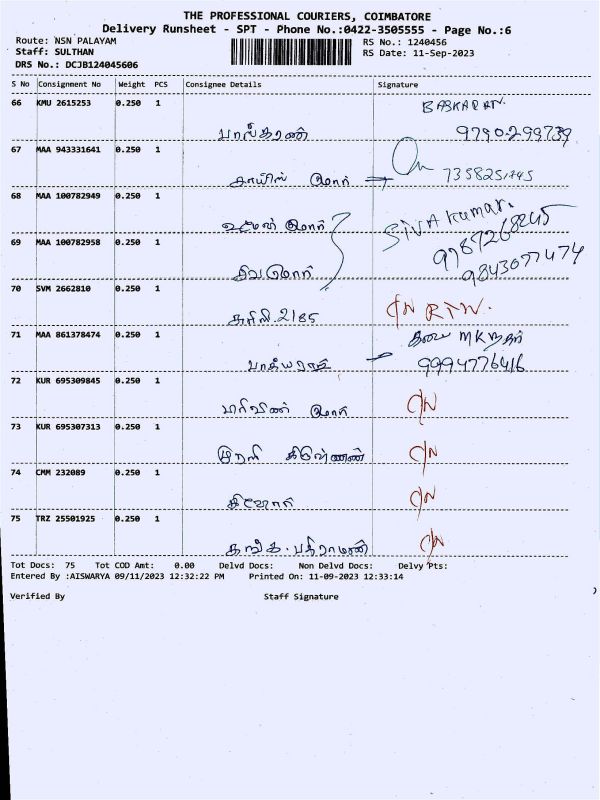 THE PROFESSIONAL COURIERS, COIMBATORE
Delivery Runsheet - SPT - Phone No.:0422-3505555 - Page No.:6
Route: NSN PALAYAM RS No.: 1240456
Staff: SULTHAN RS Date: 11-Sep-2023
DRS No.: DCJB124045606
S No Consignment No Weight PCS Consignee Details Signature
66 KMU 2615253 0.250 1 BASKARAN.
பாஸ்கரன் 9790299739
67 MAA 943331641 0.250 1
குமார்
68 MAA 100782949 0.250 1 SIVA kumar.
குமார் 9787268245
69 MAA 100782958 0.250 1
சிவகுமார் 9843077474
70 SVM 2662810 0.250 1 RTN.
2185
71 MAA 861378474 0.250 1 MK நகர்
பாக்யராஜ் 9994776416
72 KUR 695309845 0.250 1
குமார்
73 KUR 695307313 0.250 1 C/N
முரளி கிருஷ்ணன்
74 CMM 232089 0.250 1 C/N
கிஷோர்
75 TRZ 25501925 0.250 1 C/N
Tot Docs: 75 Tot COD Amt: 0.00 Delvd Docs: Non Delvd Docs: Delvy Pts:
Entered By :AISWARYA 09/11/2023 12:32:22 PM Printed On: 11-09-2023 12:33:14
Verified By Staff Signature